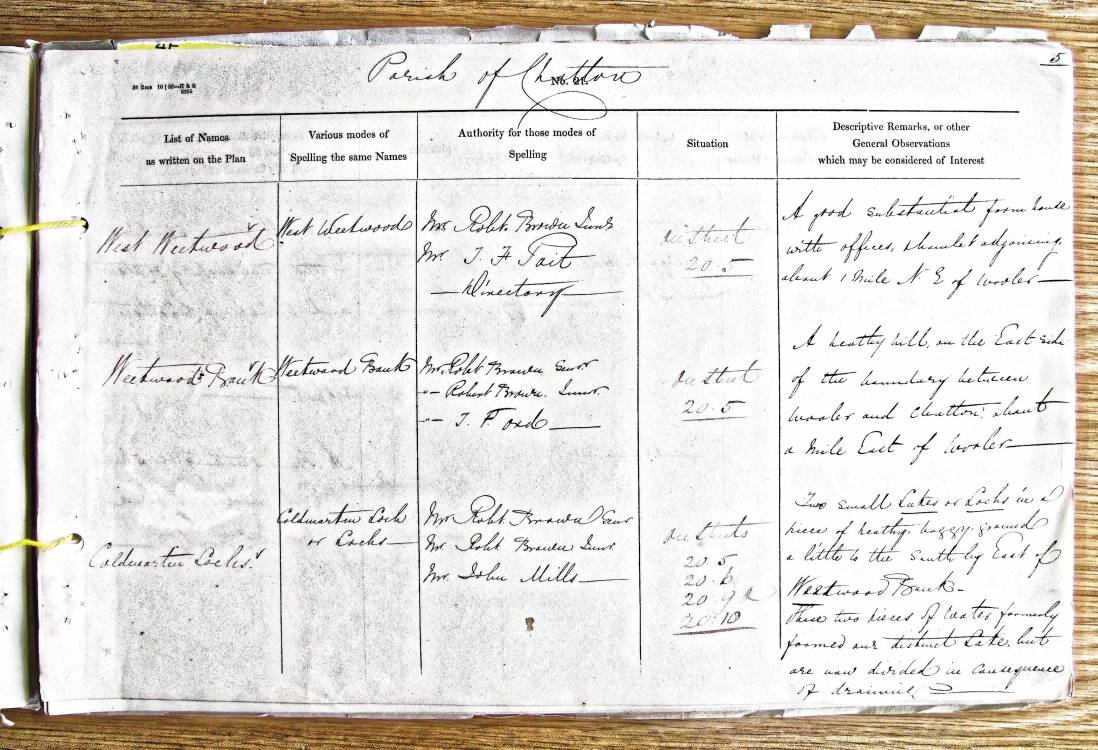 5
Parish of Chatton
No. 21.
List of Names
as written on the Plan
Various modes of
Spelling the same Names
Authority for those modes of
Spelling
Situation
Descriptive Remarks, or other
General Observations
which may be considered of Interest
West Weetwood
West Weetwood
Mr. Robt. Brown Junr
Mr. T. F Tait
Directory
On Sheet
20.5
A good substantial farm house
with offices, & hamlet adjoining.
about 1 Mile N E of Wooler
Weetwood Bank
Weetwood Bank
Mr. Robt Brown Senr
" Robert Brown. Junr.
" T. Ford
On Sheet
20.5
A heathy hill, on the East side
of the boundary between
Wooler and Chatton; about
a Mile East of Wooler
Coldmartin Lochs
Coldmartin Loch
or Lochs
Mr. Robt Brown Senr
Mr. Robt Brown Junr.
Mr. John Mills
On Sheets
20.5
20.6
20.9
20.10
Two small Lakes or Lochs in a
piece of heathy boggy ground
a little to the South by East of
Weetwood Bank.
These two pieces of water formerly
formed one distinct Lake, but
are now divided in consequence
of draining